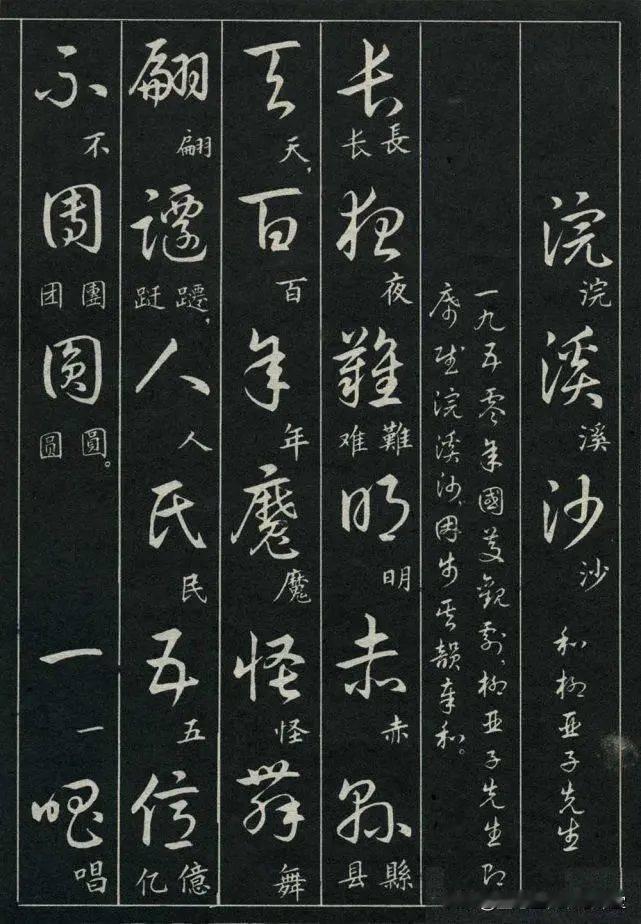 浣溪沙 和柳亞子先生
浣溪沙
一九五零年國慶觀劇,柳亞子先生即
席賦浣溪沙,因步其韻奉和。
長夜難明赤縣
長夜難明赤縣
长难县
天百年魔怪舞
天,百年魔怪舞
翩躚人民五億
翩躚,人民五億
跹亿
不團圓一唱
不團圓。一唱
团圆